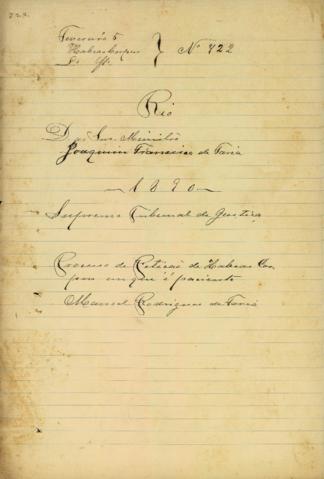 722
Fevereiro 5
Habeas Corpus
Nº 722
Rio
D. Snr. Ministro
Joaquim Francisco de Faria
1890
Supremo Tribunal de Justiça
Processo de Petição de Habeas Cor
pus em que é paciente
Manuel Rodrigues de Faria